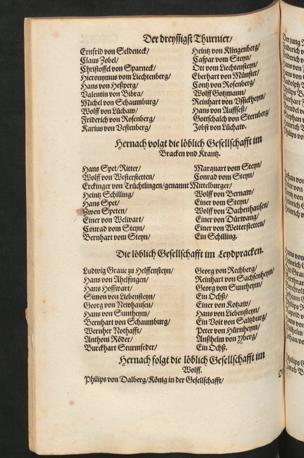 Der dreyssigst Thurnier/
Ernfrid von Seldeneck/
Claus Zobel/
Christoffel von Sparneck/
Hieronymus vom Liechtenberg/
Hans von Heßperg/
Valentin von Bibra/
Michel von Schaumburg/
Wolff von Lüchaw/
Friderich von Rosenberg/
Karius von Vestenberg/
Heintz von Klingenberg/
Caspar vom Steyn/
Ott von Liechtenstein/
Eberhart von Münster/
Contz von Rosenberg/
Wolff Gotzmann/
Reinhart von
Hans von Auffses/
Gottschalch von Sternberg/
Jobst von Lüchaw.
Hernach volgt die löblich Gesellschafft im
Bracken vnd Krantz.
Hans Spet/Ritter/
Wolff von Westerstetten/
Marquart vom Steyn/
Conrad vom Steyn/
Erckinger von Trüchtlingen/genannt Mittelburger/
Heintz Schilling/
Hans Spet/
Swen Speten/
Einer von Welwart/
Conrad vom Steyn/
Bernhart vom Steyn/
Wolff von Bernaw/
Einer vom Steyn/
Wolff von Dachenhausen/
Einer von Dürwang/
Einer von Westerstetten/
Ein Schilling.
Die löblich Gesellschafft im Leydpracken.
Ludwig Graue zu Helffensteyn/
Hans von Ahelfingen/
Hans Hoffwart/
Simon von Liebensteyn/
Georg von Newhausen/
Hans von Suntheym/
Bernhart von Schaumburg/
Wernher Nothafft/
Anthoni Röder/
Burckhart Sturmfeder/
Georg von Rechberg/
Reinhart von Sachsenheym/
Georg von Suntheym/
Ein Ochß/
Einer von Kotzaw/
Hans von Liebensteyn/
Ein Voit von Saltzburg/
Peter von Hürnheym/
Ansthelm von Yberg/
Ein Ochß.
Hernach folgt die löblich Gesellschafft im
Wolff.
Philips von Dalberg/König in der Gesellschafft/